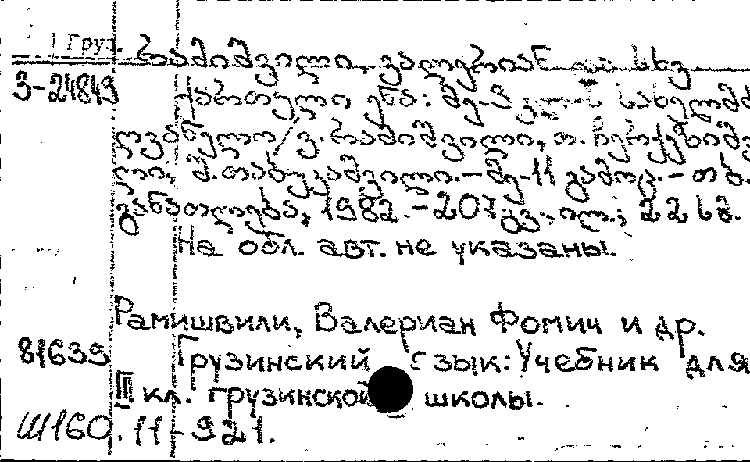 Груз.
რამიშვილი, ვალერიან და სხვ.
З-24849
ქართული ენა: მე-3 კლ-ის სახელმძ
ღვანელო/ვ. რამიშვილი, თ. ჩერქეზიშვ
ლი, შ. თაბუკაშვილი.-მე-11 გამოც.-თბ.
განათლება, 1982.-207გვ., ილ.; 22სმ.
На обл. авт. не указаны.
Рамишвили, Валериан Фомич и др.
81639 Грузинский язык: Учебник для
III кл. грузинской школы.
Ш160.11-921.